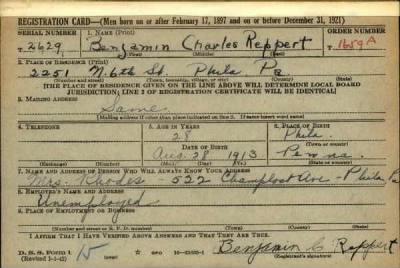 REGISTRATION CARD—(Men born on or after February 17, 1897 and on or before December 31, 1921)
SERIAL NUMBER 1. NAME (Print) ORDER NUMBER
2629 Benjamin Charles Reppert 1659 A
2. PLACE OF RESIDENCE (Print)
2251 N. 6th St. Phila Pa
(Number and street) (Town, township, village, or city) (County) (State)
[THE PLACE OF RESIDENCE GIVEN ON THE LINE ABOVE WILL DETERMINE LOCAL BOARD
JURISDICTION; LINE 2 OF REGISTRATION CERTIFICATE WILL BE IDENTICAL]
3. MAILING ADDRESS
Same
[Mailing address if other than place indicated on line 2. If same insert word same]
4. TELEPHONE 5. AGE IN YEARS 6. PLACE OF BIRTH
28 Phila.
DATE OF BIRTH (Town or county)
Aug. 28 1913 Penna
(Exchange) (Number) (Mo.) (Day) (Yr.) (State or country)
7. NAME AND ADDRESS OF PERSON WHO WILL ALWAYS KNOW YOUR ADDRESS
Mrs. Rhodes - 522 Champlost Ave - Phila Pa
8. EMPLOYER'S NAME AND ADDRESS
Unemployed
9. PLACE OF EMPLOYMENT OR BUSINESS
(Number and street or R. F. D. number) (Town) (County) (State)
I AFFIRM THAT I HAVE VERIFIED ABOVE ANSWERS AND THAT THEY ARE TRUE.
D. S. S. Form 1
(Revised 1-1-42) (over)
Benjamin C. Reppert
(Registrant's signature)